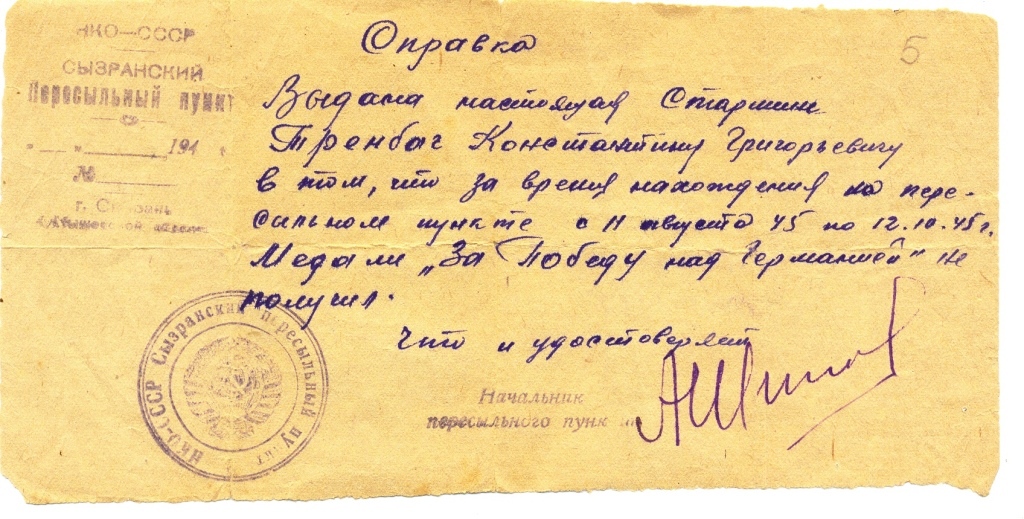 НКО—СССР
СЫЗРАНСКИЙ
Пересыльный пункт
"___"________194 г
№________
г. Сызрань
Куйбышевской област
5
Справка
Выдана настоящая Старшине
Тренбач Константину Григорьевичу
в том, что за время нахождения на пере-
сыльном пункте с 11 августа 45 по 12.10.45г.
Медали „За Победу над Германией" не
получил.
Что и удостоверяет
Начальник
пересыльного пункта
НКО-СССР Сызранский пересыльный пункт